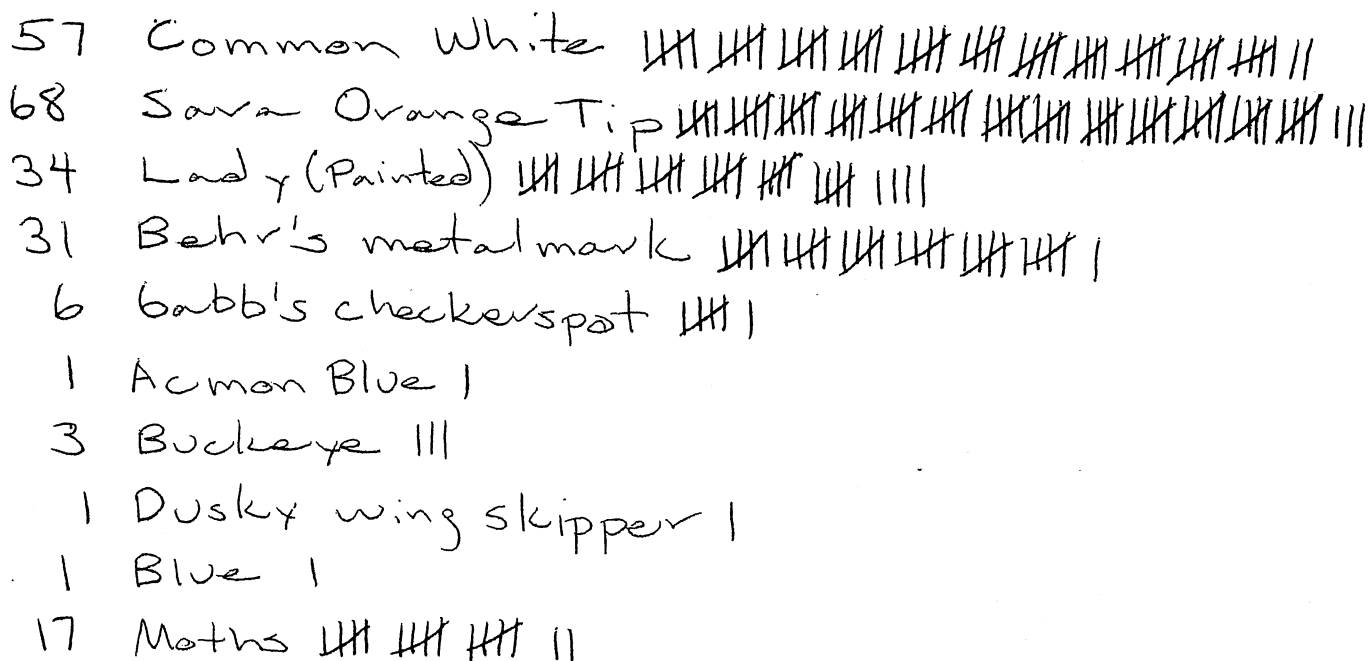 57 Common White 卌 卌 卌 卌 卌 卌 卌 卌 卌 卌 卌 ||
68 Sara Orange Tip 卌 卌 卌 卌 卌 卌 卌 卌 卌 卌 卌 卌 卌 |||
34 Lady (Painted) 卌 卌 卌 卌 卌 卌 ||||
31 Behr's metalmark 卌 卌 卌 卌 卌 卌 |
6 Gabb's checkerspot 卌 |
1 Acmon Blue |
3 Buckeye |||
1 Dusky wing skipper |
1 Blue |
17 Moths 卌 卌 卌 ||